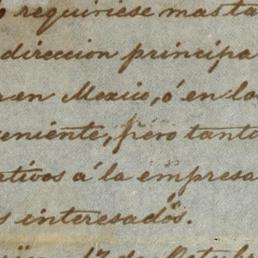 requiriese mas ta
direccion principa
en Mexico, ó en lo
eniente, pero tanto
ativos á la empresa
s interesados.
17 de Octub